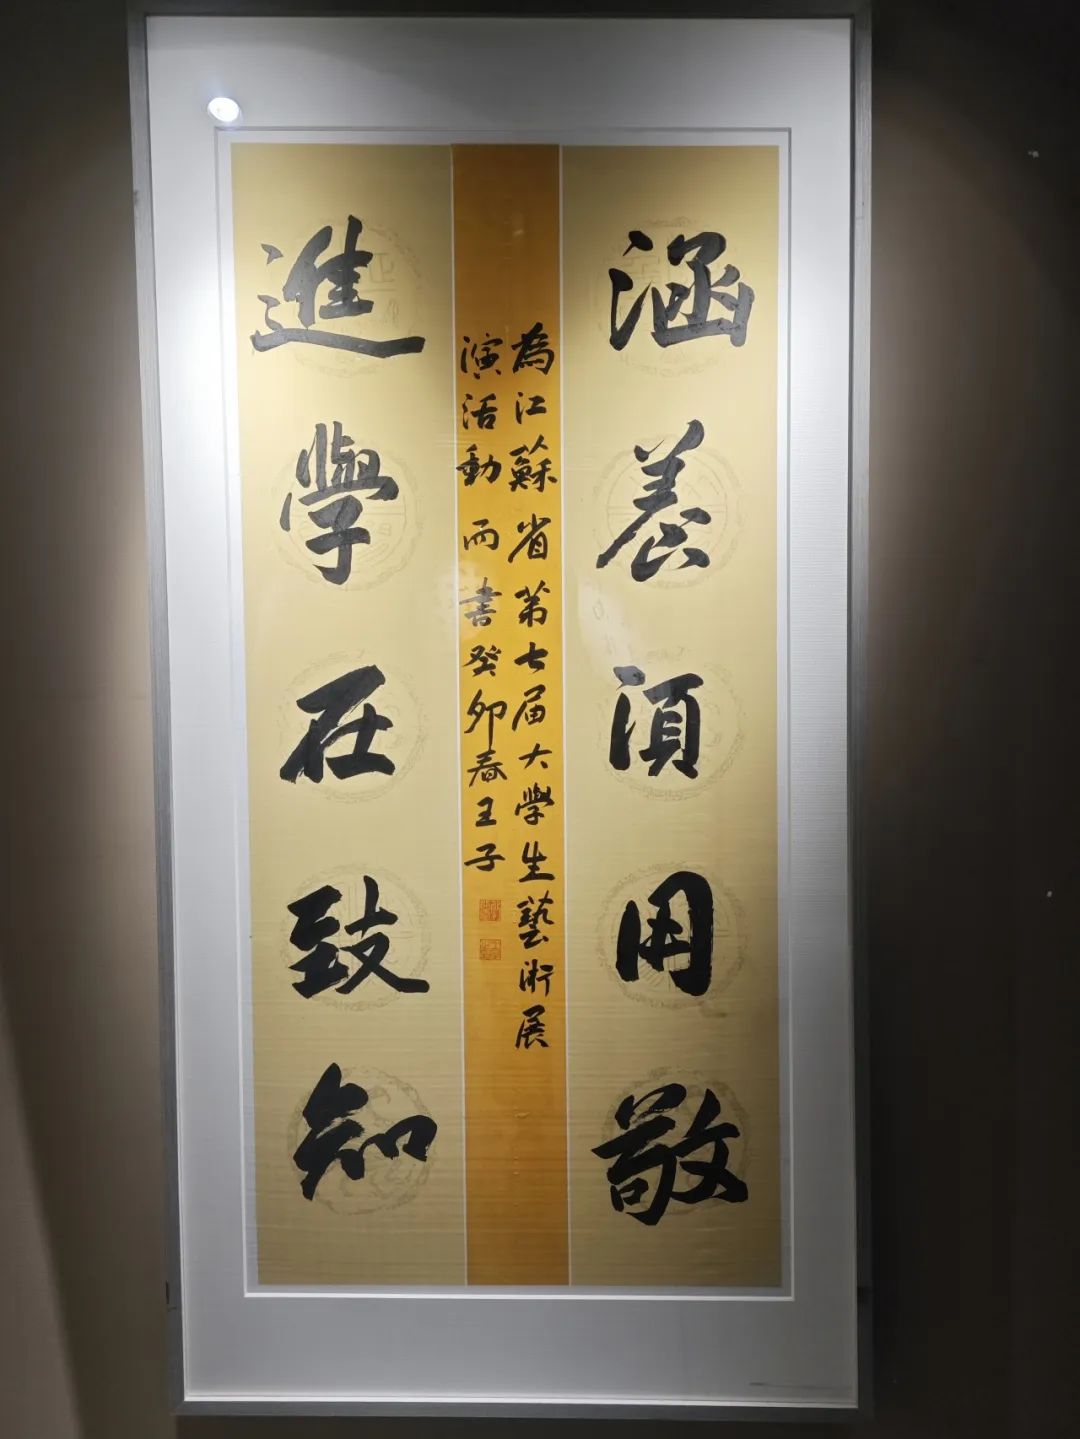 涵養須用敬
為江蘇省第七届大學生藝術展
演活動而書癸卯春王子
進學在致知